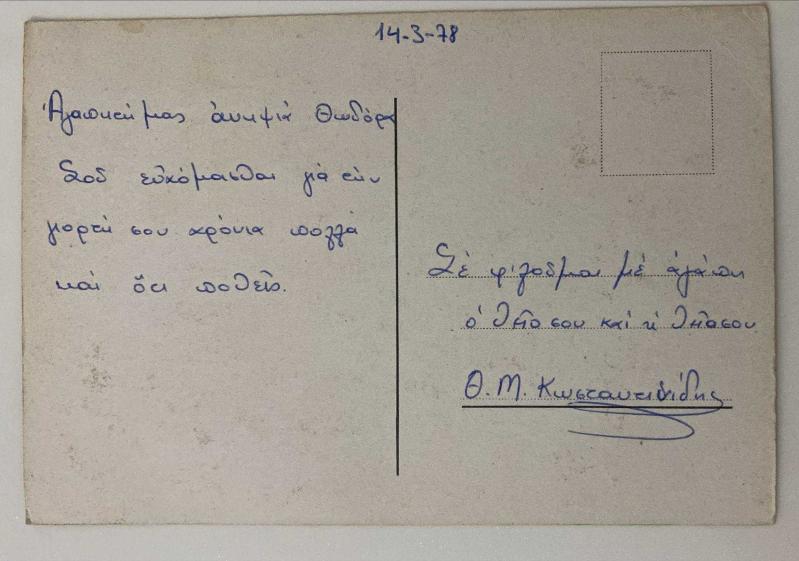 14-3-78
Ἀγαπητή μας ἀνηψιά Θωδόρα
Σοῦ εὐχόμασθαι γιά τήν
γιορτή σου χρόνια πολλά
καί ὅτι ποθεῖς.
Σέ φιλοῦμαι μέ ἀγάπη
ὁ Θεῖο σου καί ἡ Θεῖα σου
Θ. Μ. Κωσταντινίδης